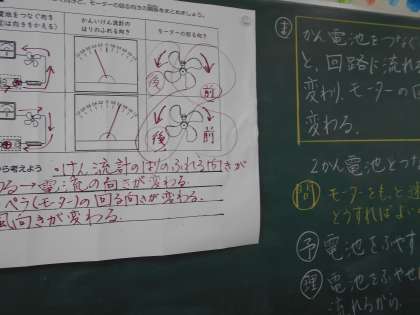 電池をつなぐ向き
(電池の向きをかえる)
かんいけん流計の
はりのふれる向き
モーターの回る向き
後
前
後
前
から考えよう
・けん流計のはりのふれる向きが
る→電流の向きが変わる。
ペラ(モーター)の回る向きが変わる。
風向きが変わる。
ま
かん電池をつなぐ
と、回路に流れ
変わり、モーターの回
変わる。
2かん電池とつな
問
モーターをもっと速
どうすればよ
予
電池をふやす
理
電池をふやせば
流れるから。